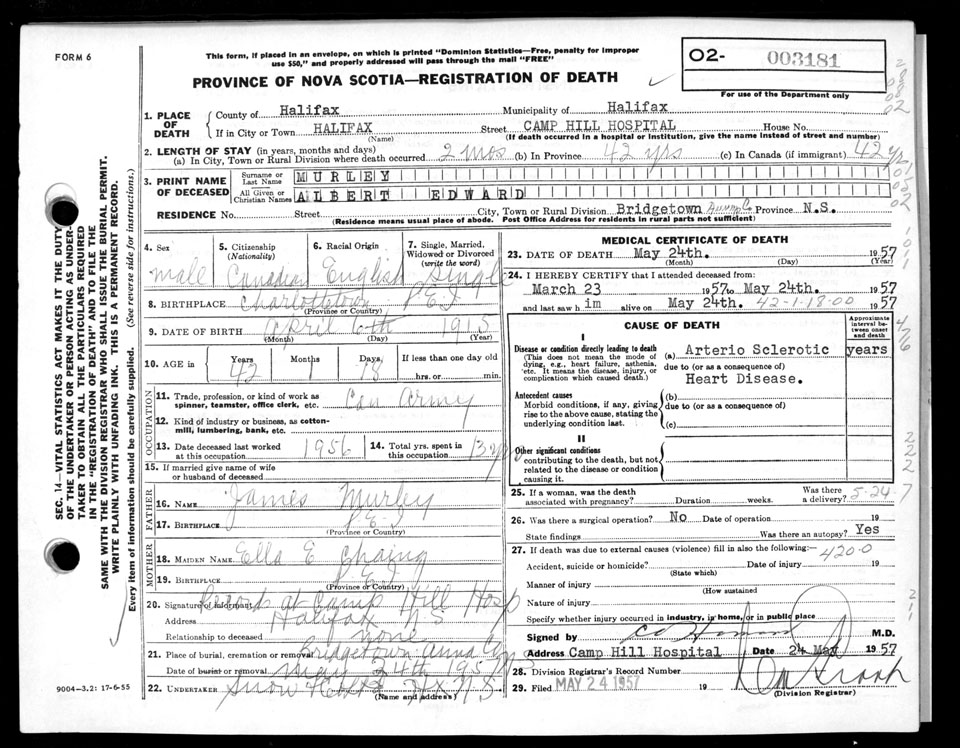 FORM 6
This form, if placed in an envelope, on which is printed "Dominion Statistics—Free, penalty for improper
use $50," and properly addressed will pass through the mail "FREE"
PROVINCE OF NOVA SCOTIA—REGISTRATION OF DEATH
O2- 003181
For use of the Department only
1. PLACE OF DEATH
County of Halifax Municipality of Halifax
If in City or Town HALIFAX Street CAMP HILL HOSPITAL House No.
(Name) (If death occurred in a hospital or institution, give the name instead of street and number)
2. LENGTH OF STAY (in years, months and days)
(a) In City, Town or Rural Division where death occurred 2 mos (b) In Province 42 yrs (c) In Canada (if immigrant) 42 yrs
3. PRINT NAME OF DECEASED
Surname or Last Name MURLEY
All Given or Christian Names ALBERT EDWARD
RESIDENCE No. Street City, Town or Rural Division Bridgetown Province N.S.
(Residence means usual place of abode. Post Office Address for residents in rural parts not sufficient)
4. Sex 5. Citizenship (Nationality) 6. Racial Origin 7. Single, Married, Widowed or Divorced (write the word)
male Canadian English Single
8. BIRTHPLACE Charlottetown P E I
(Province or Country)
9. DATE OF BIRTH April 6th 1915
(Month) (Day) (Year)
10. AGE in Years Months Days If less than one day old
42 1 18 hrs. or min.
OCCUPATION
11. Trade, profession, or kind of work as spinner, teamster, office clerk, etc. Can Army
12. Kind of industry or business, as cotton-mill, lumbering, bank, etc.
13. Date deceased last worked at this occupation 1956 14. Total yrs. spent in this occupation 13 yrs
15. If married give name of wife or husband of deceased
FATHER
16. NAME James Murley
17. BIRTHPLACE P E I
MOTHER
18. MAIDEN NAME Ella E
19. BIRTHPLACE P E I
(Province or Country)
20. Signature of informant Records at Camp Hill Hosp
Address Halifax N S
Relationship to deceased none
21. Place of burial, cremation or removal Bridgetown Anna Co
Date of burial or removal May 24th 1957
22. UNDERTAKER Snow N S
(Name and address)
9004—3.2: 17-6-55
MEDICAL CERTIFICATE OF DEATH
23. DATE OF DEATH May 24th. 1957
(Month) (Day) (Year)
24. I HEREBY CERTIFY that I attended deceased from:
March 23 1957 to May 24th. 1957
and last saw h im alive on May 24th. 42-1-18-00 1957
CAUSE OF DEATH
Approximate interval between onset and death
I
Disease or condition directly leading to death
(This does not mean the mode of dying, e.g., heart failure, asthenia, etc. It means the disease, injury, or complication which caused death.)
(a) Arterio Sclerotic years
due to (or as a consequence of)
Heart Disease.
Antecedent causes
Morbid conditions, if any, giving rise to the above cause, stating the underlying condition last.
(b)
due to (or as a consequence of)
(c)
II
Other significant conditions
contributing to the death, but not related to the disease or condition causing it.
25. If a woman, was the death associated with pregnancy? Duration weeks. Was there a delivery? 5-24-7
26. Was there a surgical operation? No Date of operation 19
State findings Was there an autopsy? Yes
27. If death was due to external causes (violence) fill in also the following:— 420-0
Accident, suicide or homicide? Date of injury 19
(State which)
Manner of injury
(How sustained
Nature of injury
Specify whether injury occurred in industry, in home, or in public place
Signed by M.D.
Address Camp Hill Hospital Date 24 May 1957
28. Division Registrar's Record Number
29. Filed MAY 24 1957 19
(Division Registrar)
SEC. 14—VITAL STATISTICS ACT MAKES IT THE DUTY
OF THE UNDERTAKER OR PERSON ACTING AS UNDER-
TAKER TO OBTAIN ALL THE PARTICULARS REQUIRED
IN THE "REGISTRATION OF DEATH" AND TO FILE THE
SAME WITH THE DIVISION REGISTRAR WHO SHALL ISSUE THE BURIAL PERMIT.
WRITE PLAINLY WITH UNFADING INK. THIS IS A PERMANENT RECORD.
Every item of information should be carefully supplied. (See reverse side for instructions.)